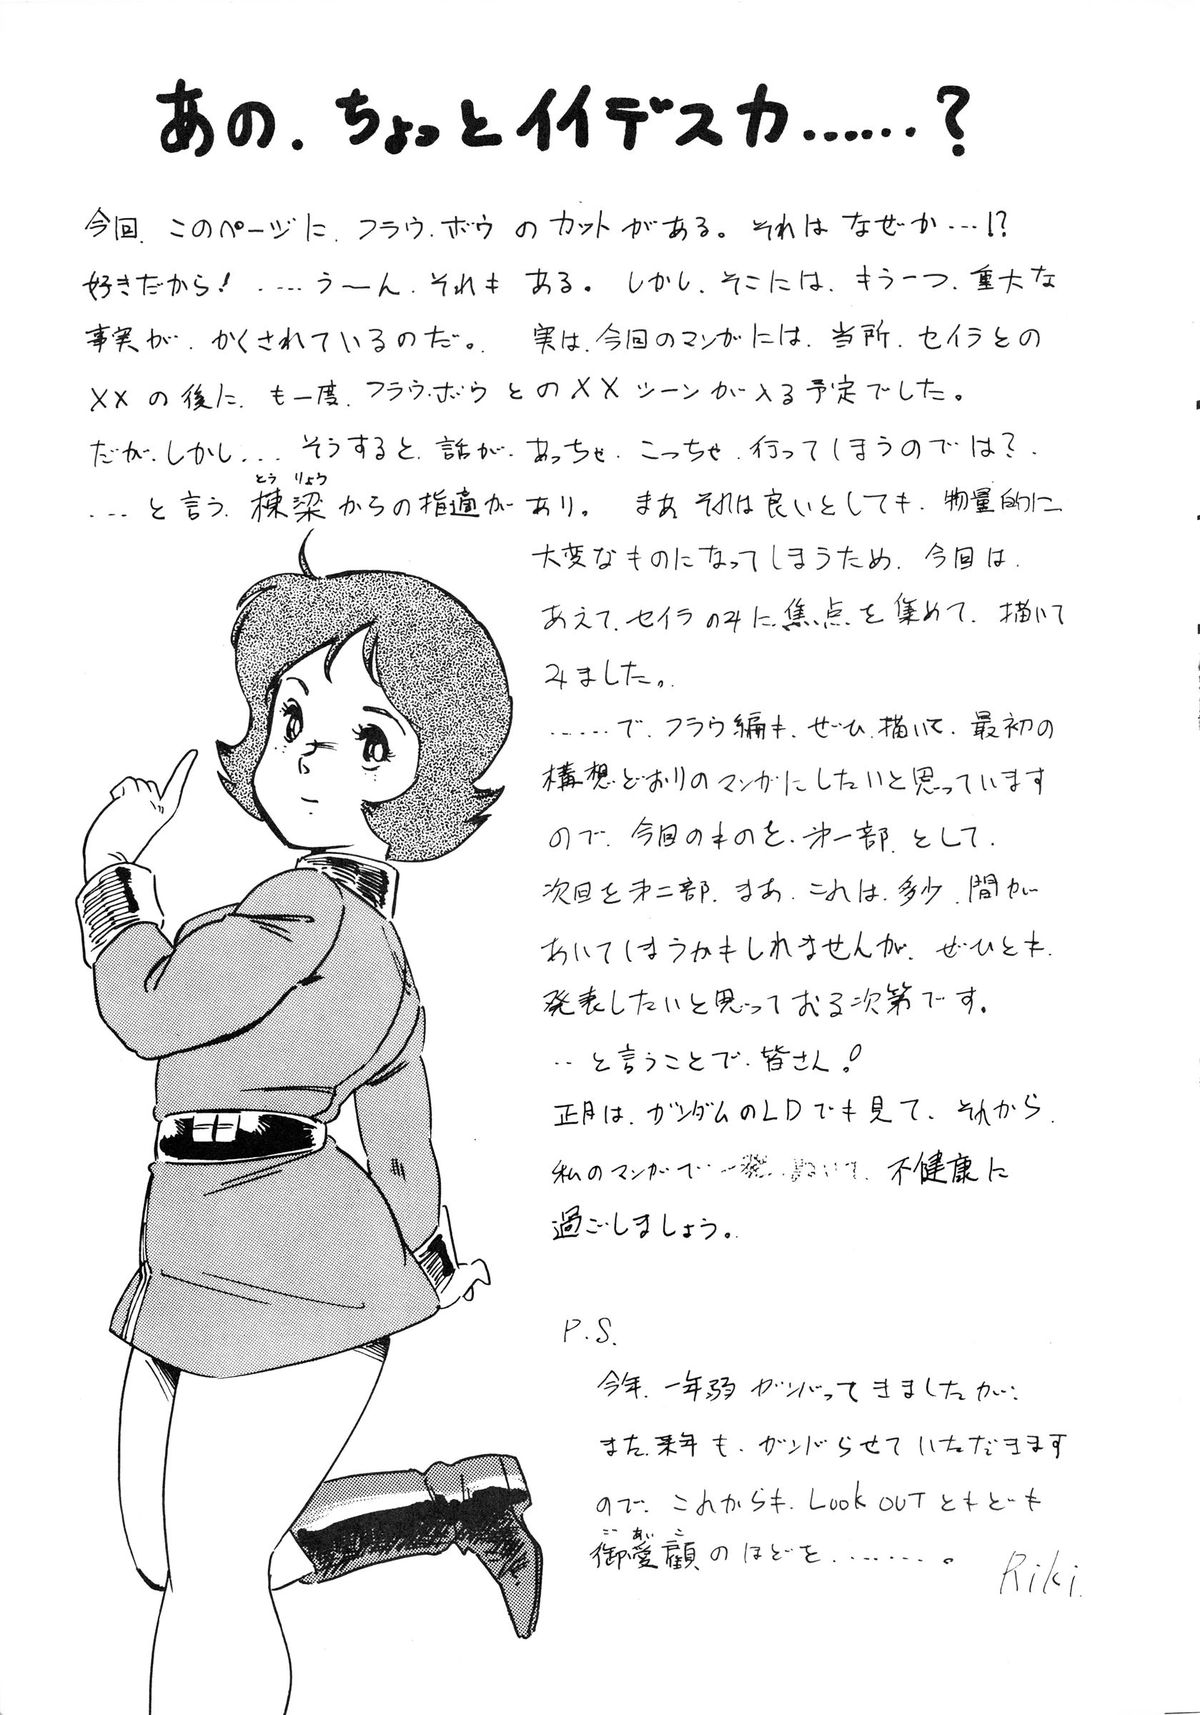 あの、ちょっとイイデスカ……？
今回、このページに、フラウ・ボウのカットがある。それはなぜか…!?
好きだから！…‥う〜ん、それもある。しかし、そこには、もう一つ、重大な
事実が、かくされているのだ。実は、今回のマンガには、当所、セイラとの
××の後に、も一度、フラウ・ボウとの××シーンが入る予定でした。
だが、しかし…そうすると、話が、あっちゃ、こっちゃ、行ってしまうのでは？、
…と言う、棟梁からの指適があり。まあ、それは良いとしても、物量的に、
とうりょう
大変なものになってしまうため、今回は、
あえて、セイラのみに、焦点を集めて、描いて
みました。
……で、フラウ編も、ぜひ、描いて、最初の
構想どおりのマンガにしたいと思っています
ので、今回のものを、第一部、として、
次回を第二部、まあ、これは、多少、間が
あいてしまうかもしれませんが、ぜひとも、
発表したいと思っておる次第です。
‥と言うことで、皆さん！
正月は、ガンダムのLDでも見て、それから、
私のマンガで一発、ぬいて、不健康に
過ごしましょう。
P.S.
今年、一年弱ガンバってきましたが、
また来年も、ガンバらせていただきます
ので、これからも、LOOK OUTともども
御愛顧のほどを……。
ごあいこ
Riki.